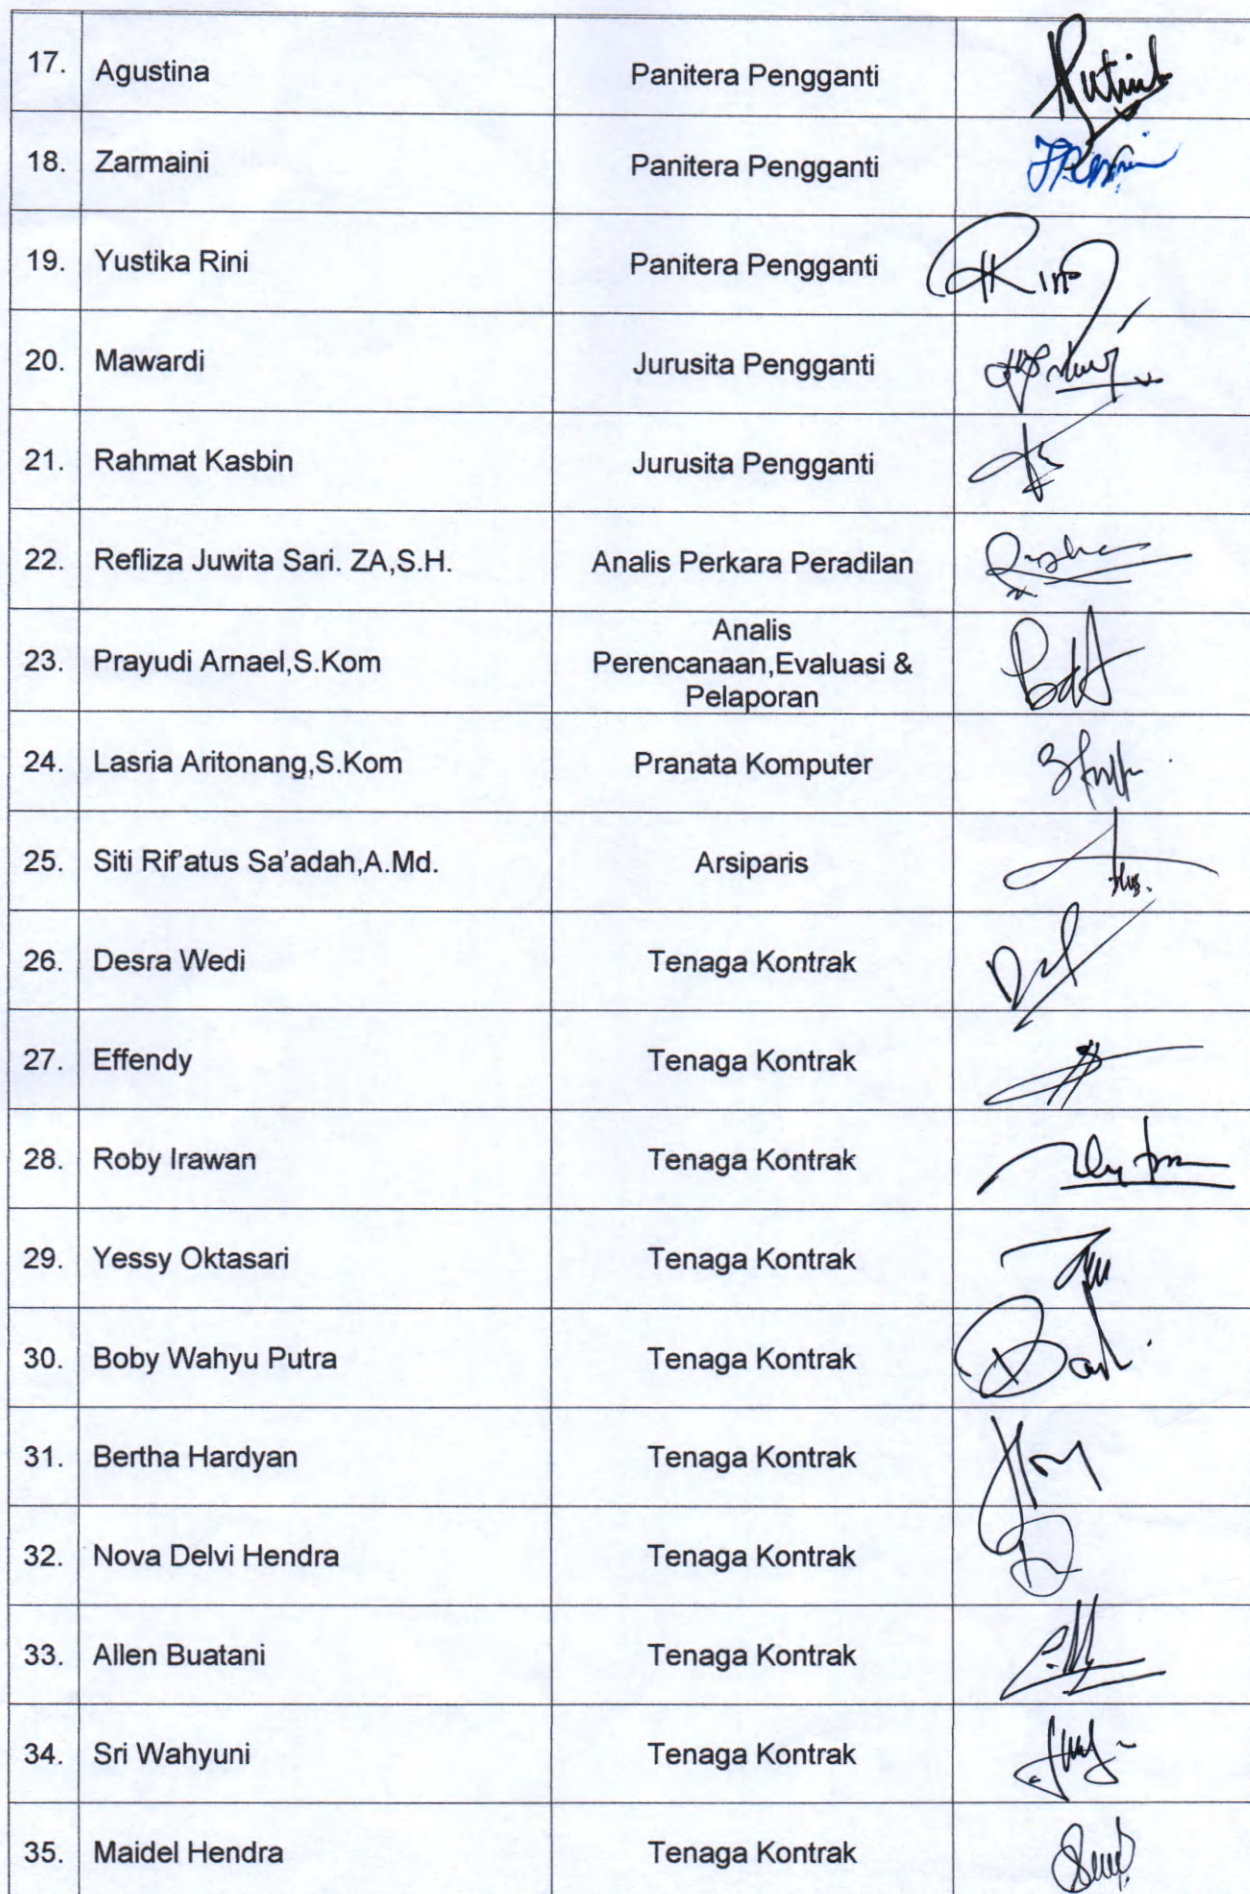 17. Agustina Panitera Pengganti
18. Zarmaini Panitera Pengganti
19. Yustika Rini Panitera Pengganti
20. Mawardi Jurusita Pengganti
21. Rahmat Kasbin Jurusita Pengganti
22. Refliza Juwita Sari. ZA,S.H. Analis Perkara Peradilan
23. Prayudi Arnael,S.Kom Analis
Perencanaan,Evaluasi &
Pelaporan
24. Lasria Aritonang,S.Kom Pranata Komputer
25. Siti Rif'atus Sa'adah,A.Md. Arsiparis
26. Desra Wedi Tenaga Kontrak
27. Effendy Tenaga Kontrak
28. Roby Irawan Tenaga Kontrak
29. Yessy Oktasari Tenaga Kontrak
30. Boby Wahyu Putra Tenaga Kontrak
31. Bertha Hardyan Tenaga Kontrak
32. Nova Delvi Hendra Tenaga Kontrak
33. Allen Buatani Tenaga Kontrak
34. Sri Wahyuni Tenaga Kontrak
35. Maidel Hendra Tenaga Kontrak